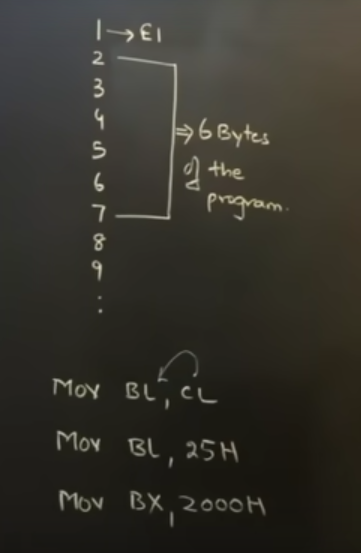 1 → E1
2
3
4
5 ⇒ 6 Bytes
6 of the
7 program.
8
9
:
MOV BL, CL
MOV BL, 25H
MOV BX, 2000H